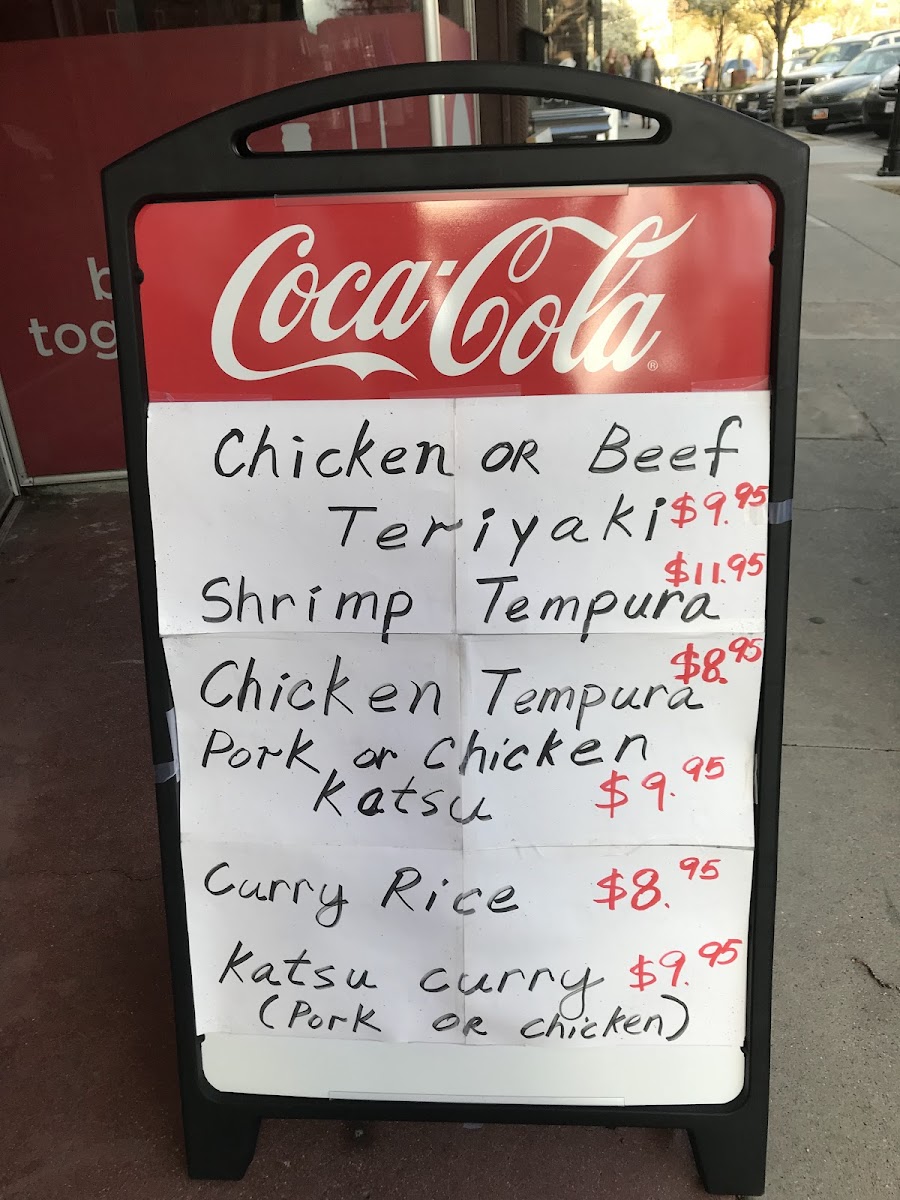 Coca-Cola®
b
tog
Chicken OR Beef
Teriyaki $9.95
$11.95
Shrimp Tempura
$8.95
Chicken Tempura
Pork or Chicken
Katsu $9.95
Curry Rice $8.95
Katsu curry $9.95
(Pork OR chicken)